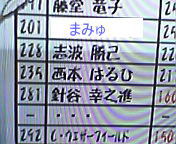 藤堂 竜子
201 まみゅ
228 志波 勝己
235 西本 はるひ
281 針谷 幸之進 160
292 C・ウェザーフィールド 150